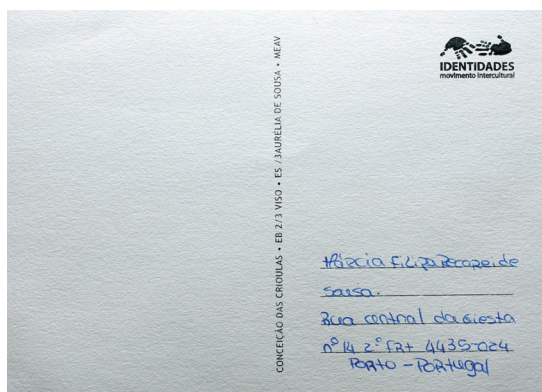 IDENTIDADES
movimento intercultural
CONCEIÇÃO DAS CRIOULAS • EB 2/3 VISO • ES /3AURELIA DE SOUSA • MEAV
Márcia Filipa de
Sousa.
Rua central da Giesta
nº 14 2º FRT 4435-024
PORTO - PORTUgal